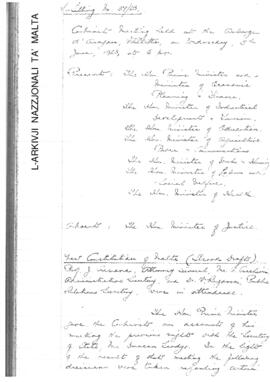 L-ARKIVJI NAZZJONALI TA' MALTA
Sitting No.
Cabinet Meeting held at the Auberge
d'Aragon, Valletta, on Wednesday,
June, at
Present: The Hon. Prime Minister and
Minister of Economic
Planning & Finance.
The Hon. Minister of Industrial
Development & Tourism.
The Hon. Minister of Education.
The Hon. Minister of Agriculture
Power & Communications
The Hon. Minister of Works & Housing
The Hon. Minister of Labour and
Social Welfare.
The Hon. Minister of Health
Absent: The Hon. Minister of Justice
Constitution of Malta (Second Draft)
Prof. J. Attorney General, Mr.
Administrative Secretary and Public
Relations Secretary, were in attendance.
The Hon. Prime Minister
gave the Cabinet an account of his
meeting the previous night with the Secretary
of State, Mr. Duncan Sandys. In the light
of the result of that meeting the following
decisions were taken regarding certain